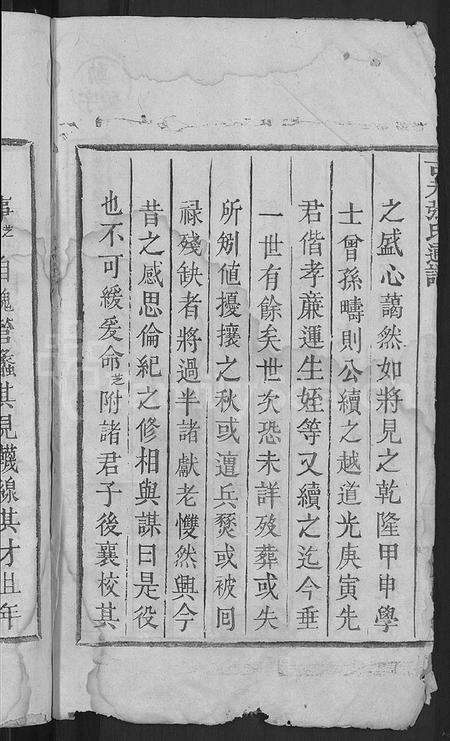 之盛心藹然如將見之乾隆甲申學
士曾孫疇則公續之越道光庚寅先
君偕孝蔴運生姪等又續之迄今垂
一世有餘矣世次恐未詳歿葬或失
所矧値擾攘之秋或遭兵燹或被回
祿殘缺者將過半諸獻老戄然興今
昔之感思倫紀之修相與謀曰是役
也不可緩爰命芝附諸君子後襄校其
事芝自媿管蠡其見襪線其才且年